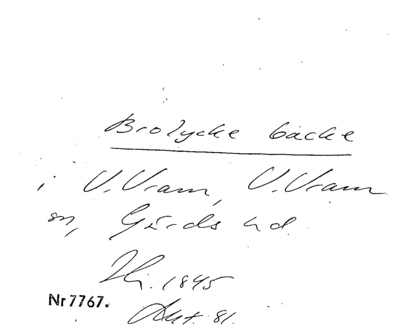 Brolycke backe
i V. Vram, V. Vram
sn, Gärds hd.
1845
Nr 7767. Akt. 81.